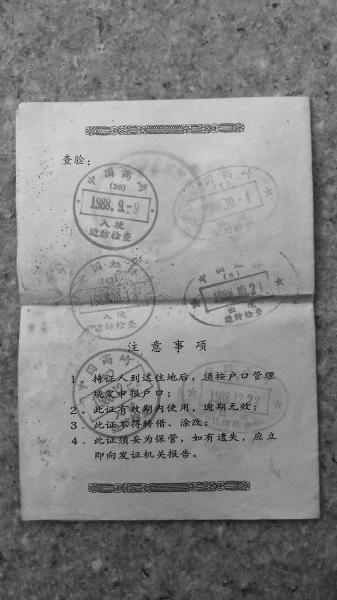 查验：
中国高山
(30)
1988.9.-9
入境
边防检查
(1)
10.-4
边防检查
中国
入境
边防检查
中国
(6)
1988.10.21
边防检查
注意事项
中国高
1．持证人到达住地后，须按户口管理
规定申报户口；
2．此证有效期内使用，逾期无效；
3．此证不得转借、涂改；
4．此证须妥为保管，如有遗失，应立
即向发证机关报告。